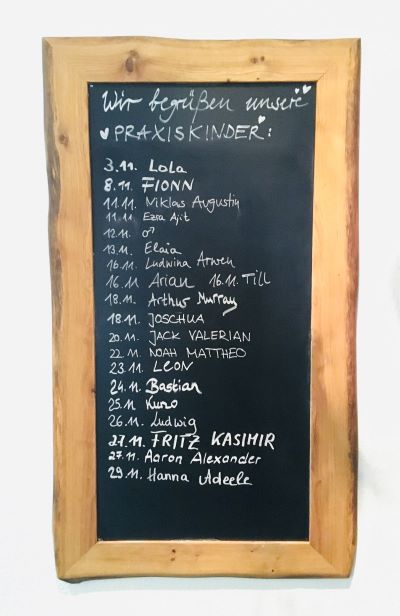 Wir begrüßen unsere
PRAXISKINDER:
3.11. Lola
8.11. FIONN
11.11. Niklas Augustin
11.11 Ezra Ajit
12.11. ♂
13.11. Elaia
16.11. Ludwina Arwen
16.11 Arian 16.11. Till
18.11. Arthur Murray
18.11. JOSCHUA
20.11. JACK VALERIAN
22.11 NOAH MATTHEO
23.11 LEON
24.11. Bastian
25.11 Kuno
26.11. Ludwig
27.11. FRITZ KASIMIR
27.11. Aaron Alexander
29.11. Hanna Adeele